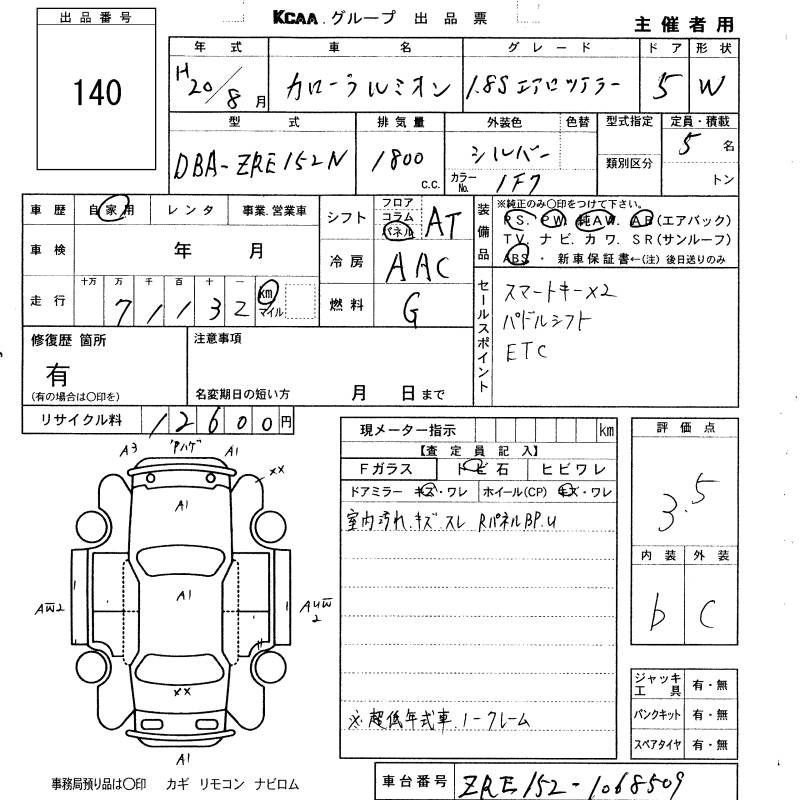 出品番号
140
KCAA.グループ 出品票
主催者用
年式 車名 グレード ドア 形状
H20/8月 カローラルミオン 1.8S エアロツアラー 5 W
型式 排気量 外装色 色替 型式指定 定員・積載
類別区分
DBA-ZRE152N 1800 c.c. シルバー 5名
カラーNo. 1F7 トン
車歴 自家用 レンタ 事業.営業車
車検 年 月
走行 十万 万 千 百 十 一 km マイル
7 1 1 3 2
シフト フロア コラム パネル AT
冷房 AAC
燃料 G
装備品
※純正のみ○印をつけて下さい。
PS. PW. 純AW. AB(エアバック)
TV. ナビ. カワ. SR(サンルーフ)
ABS・新車保証書←(注)後日送りのみ
セールスポイント
スマートキー×2
パドルシフト
ETC
修復歴 箇所
有
(有の場合は○印を)
注意事項
名変期日の短い方 月 日まで
リサイクル料 12600円
現メーター指示 km
【査定員記入】
Fガラス トビ石 ヒビワレ
ドアミラー キズ・ワレ ホイール(CP) キズ・ワレ
室内汚れ.キズ スレ RパネルBP.U
※超低年式車.ノークレーム
評価点
3.5
内装 外装
b C
ジャッキ工具 有・無
パンクキット 有・無
スペアタイヤ 有・無
A3 A1
××
A1
A1
AW2 AUW2
××
A1
事務局預り品は○印 カギ リモコン ナビロム
車台番号 ZRE152-1068509